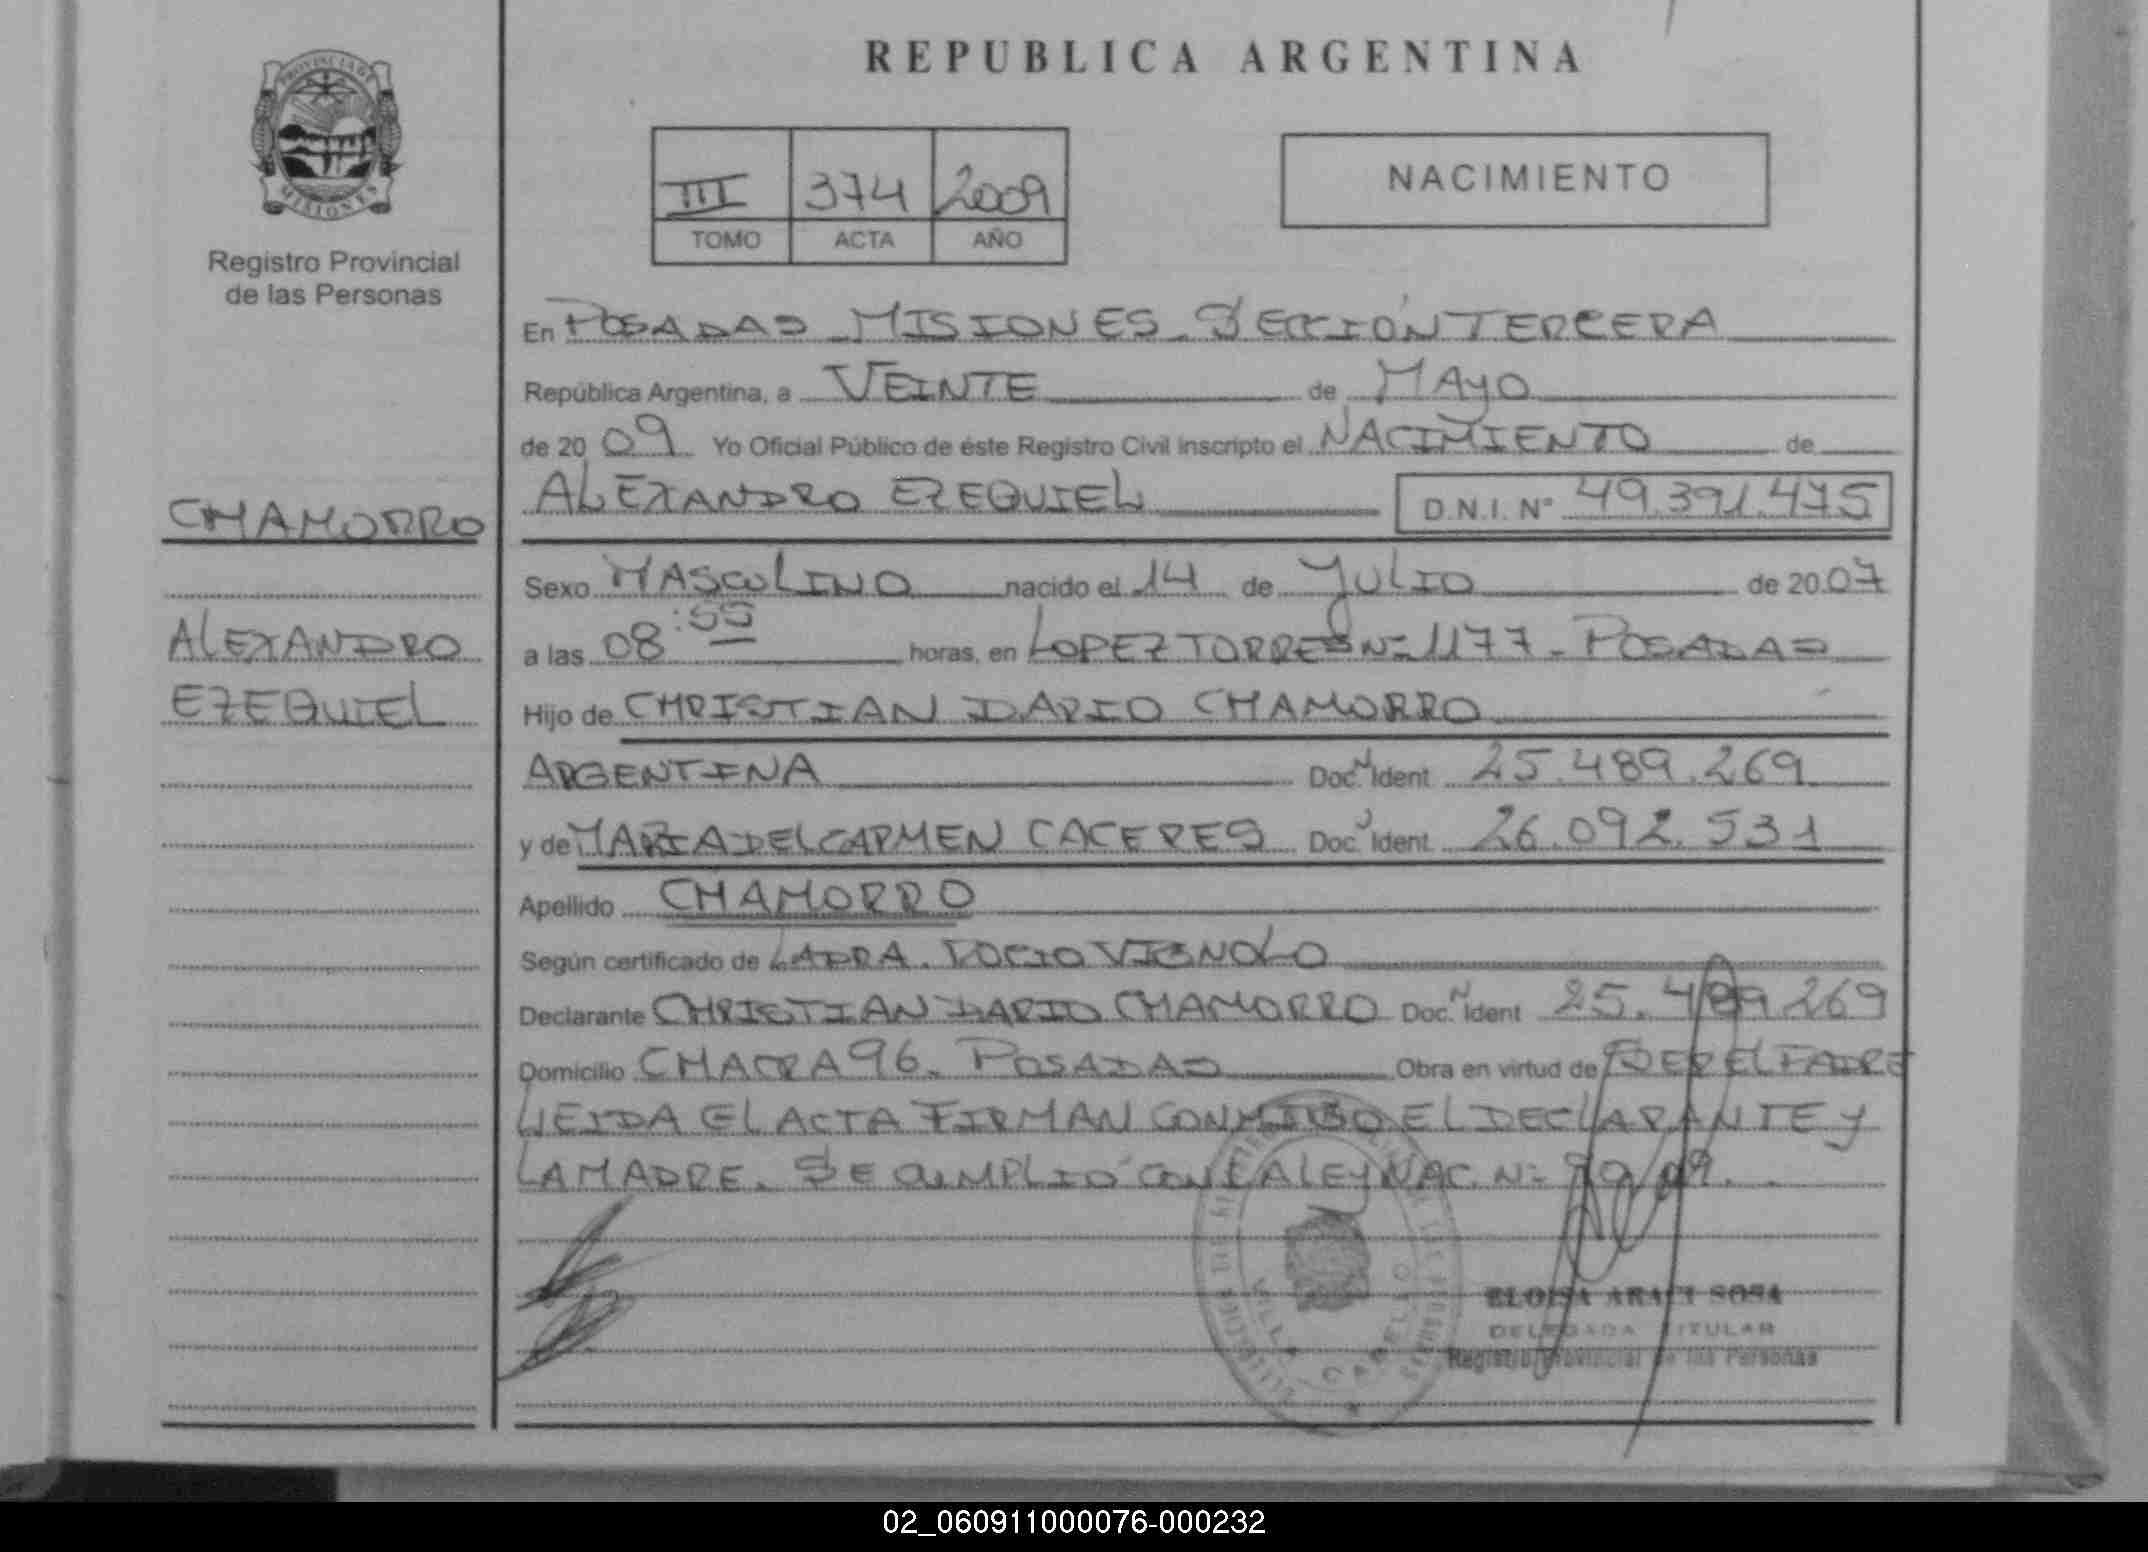 REPUBLICA ARGENTINA
PROVINCIA DE
MISIONES
Registro Provincial
de las Personas
III 374 2009
TOMO ACTA AÑO
NACIMIENTO
En POSADAS MISIONES. SECCIÓN TERCERA
República Argentina, a VEINTE de MAYO
de 20 09 Yo Oficial Público de éste Registro Civil inscripto el NACIMIENTO de
CHAMORRO
ALEXANDRO EZEQUIEL D.N.I. Nº 49.391.475
Sexo MASCULINO nacido el 14 de JULIO de 20 07
ALEXANDRO
EZEQUIEL
a las 08:55 horas, en LOPEZ TORRES Nº 1177 - POSADAS
Hijo de CHRISTIAN DARIO CHAMORRO
ARGENTINA Doc. Ident 25.489.269
y de MARIA DEL CARMEN CACERES Doc. Ident 26.092.531
Apellido CHAMORRO
Según certificado de LA DRA. ROCIO VIGNOLO
Declarante CHRISTIAN DARIO CHAMORRO Doc. Ident 25.489.269
Domicilio CHACRA 96. POSADAS Obra en virtud de SER EL PADRE
LEIDA EL ACTA FIRMAN CONMIGO EL DECLARANTE Y
LA MADRE. SE CUMPLIÓ CON LA LEY NAC. Nº
VILLA CABELLO
ELOISA ARACI SOSA
DELEGADA TITULAR
Registro Provincial de las Personas
02_060911000076-000232